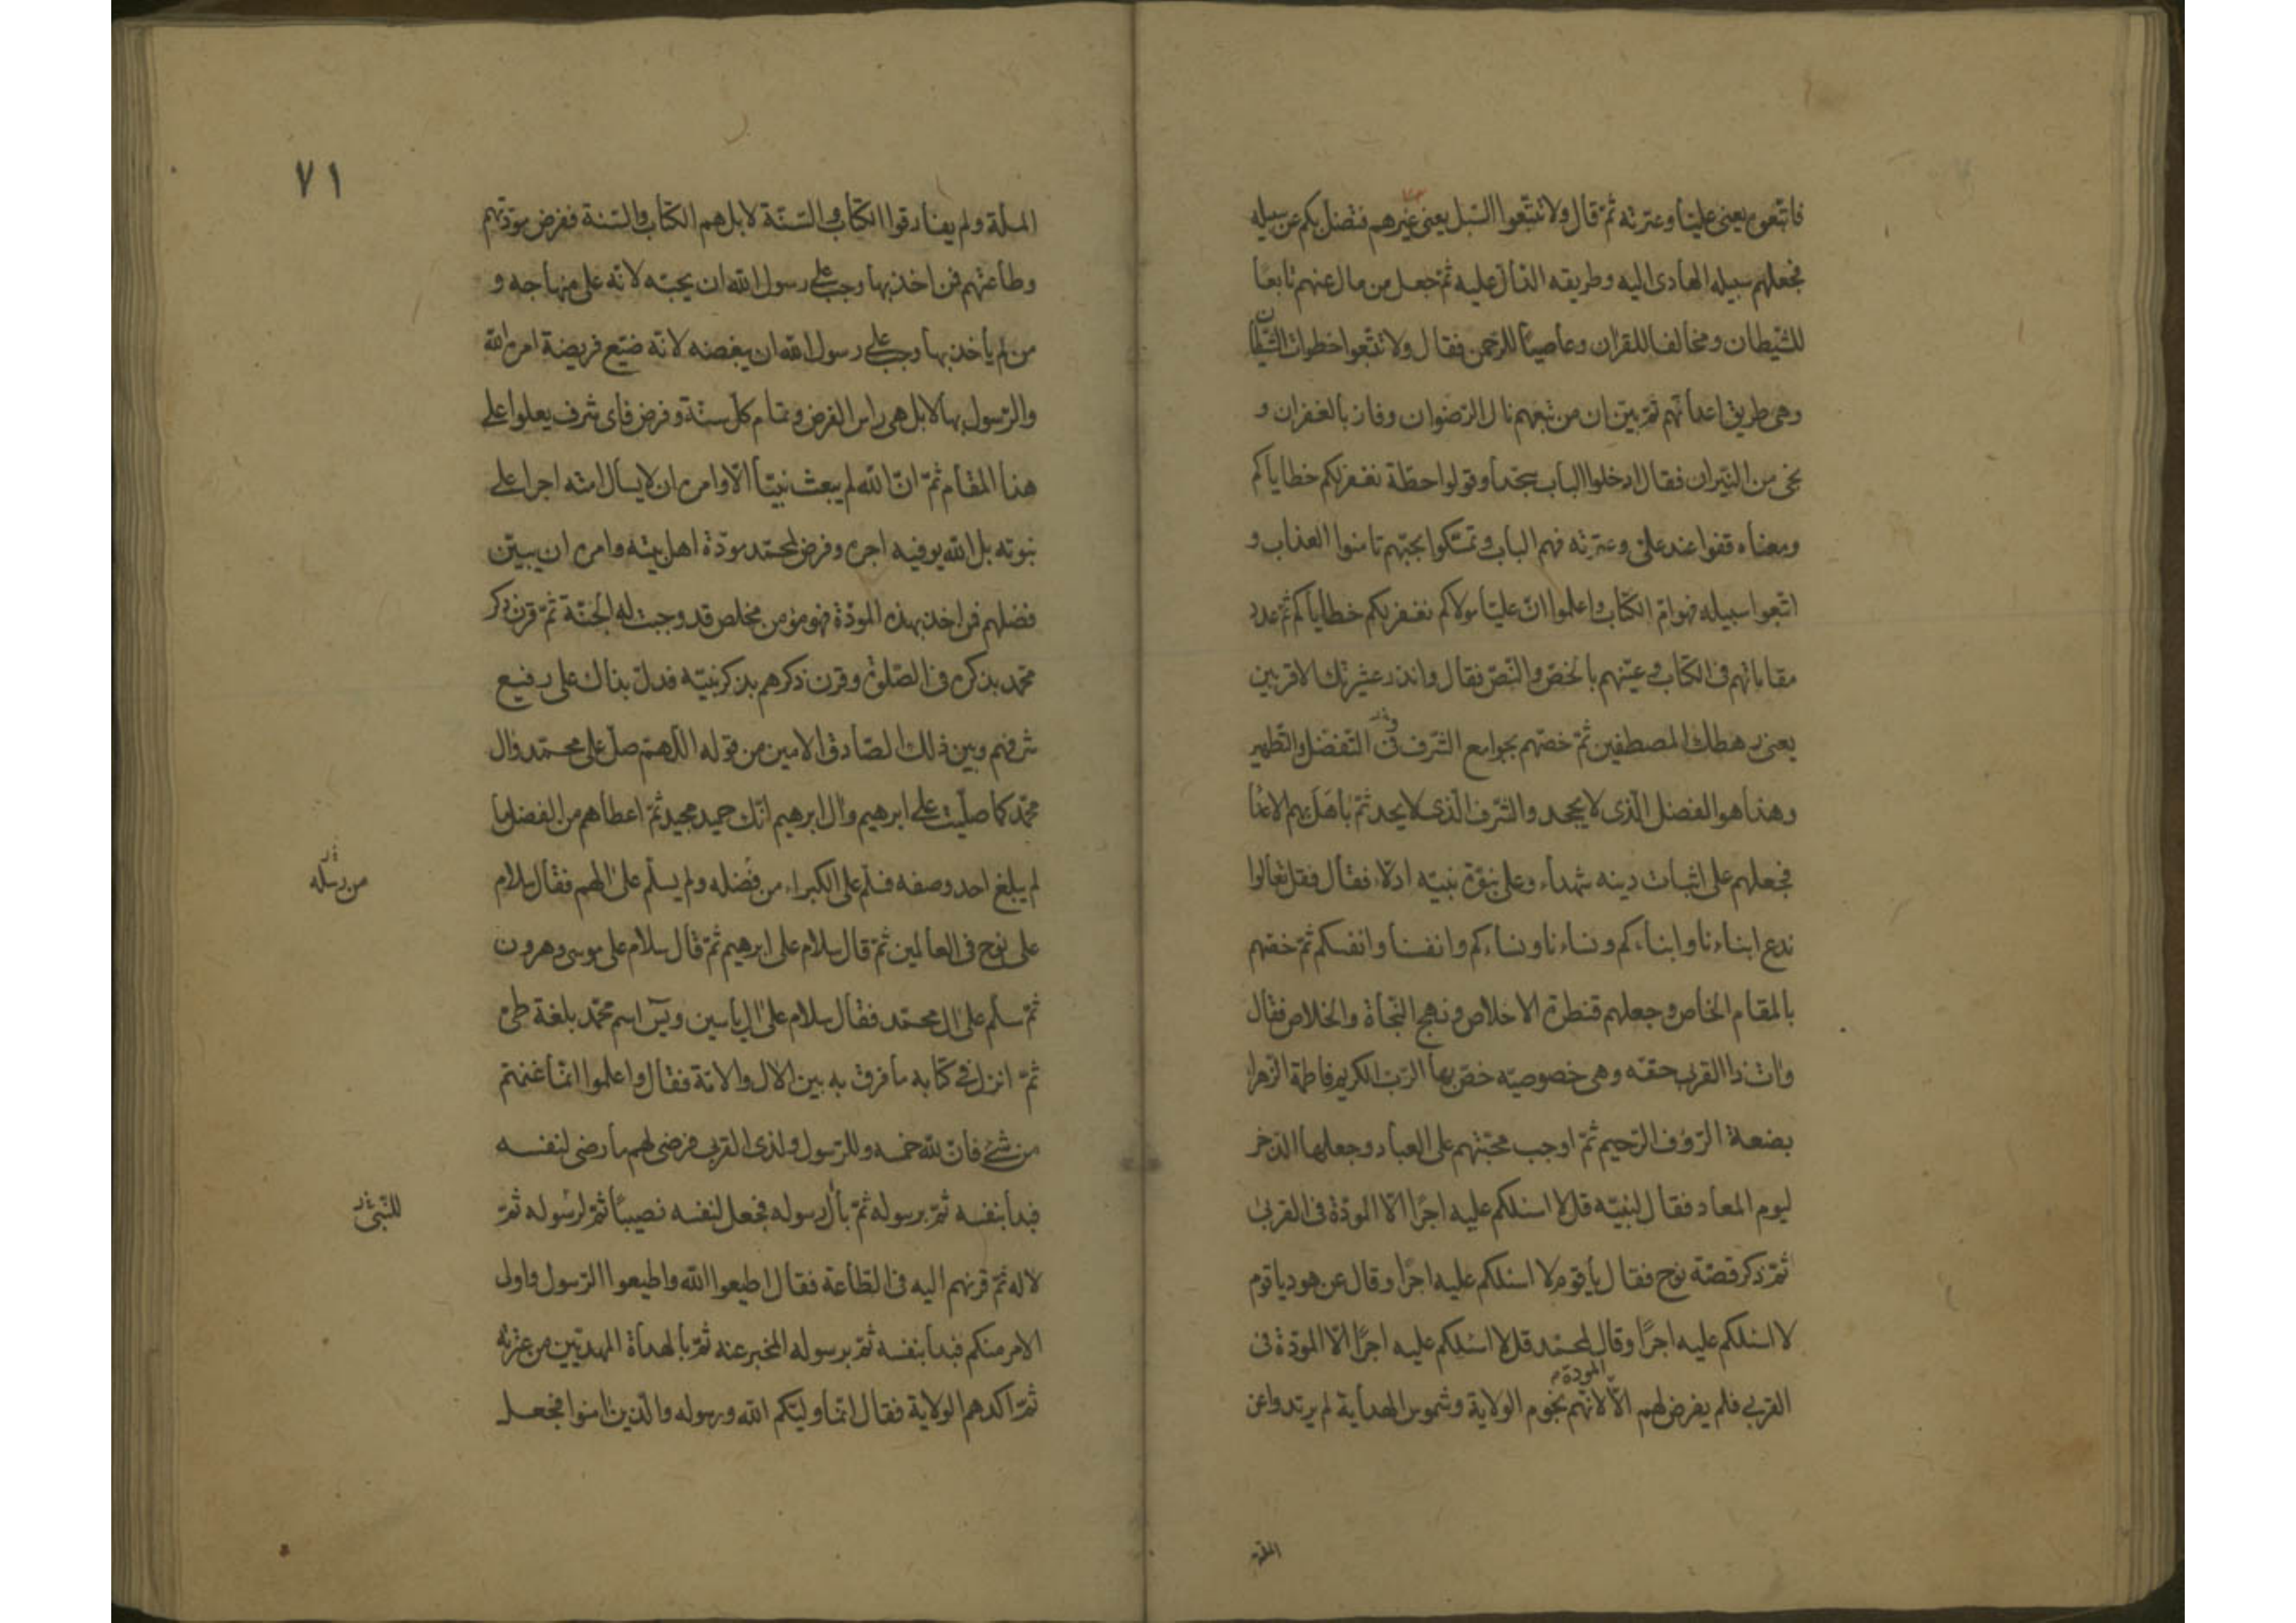 فاتبعوه يعنى عليّا وعترته ثمّ قال ولا تتبعوا السّبل يعنى غيرهم فتضلّ بكم عن سبيله
فجعلهم سبيله الهادى اليه وطريقه الدّالّ عليه ثمّ جعل من مال عنهم تابعا
للشّيطان ومخالفا للقران وعاصيًا للرّحمن فقال ولا تتّبعوا خطوات الشّيطان
وهى طريق اعدائهم ثمّ بيّن ان من تبعهم نال الرّضوان وفاز بالغفران و
نجى من النّيران فقال ادخلوا الباب سجّدا وقولوا حطّة نغفر لكم خطاياكم
ومعناه قفوا عند علىّ وعترته فهم الباب وتمسّكوا بحبّهم تامنوا العذاب و
اتّبعوا سبيله فهو امّ الكتاب واعلموا انّ عليّا مولاكم نغفر لكم خطاياكم ثمّ عدد
مقاماتهم فى الكتاب وعيّنهم بالخصّ والنّصّ فقال وانذر عشيرتك الاقربين
يعنى رهطك المصطفين ثمّ خصّهم بجوامع الشّرف فى التّفضّل والتّطهير
وهذا هو الفضل الّذى لا يجحد والشّرف الّذى لا يحد ثمّ باهَل بهم الاعدا
فجعلهم على اثبات دينه شهداء وعلى نبوّة نبيّه ادلّاء فقال فقل تعالوا
ندع ابناءنا وابناءكم ونساءنا ونساءكم وانفسنا وانفسكم ثمّ خصّهم
بالمقام الخاص وجعلهم قنطرة الاخلاص ونهج النّجاة والخلاص فقال
وات ذا القربى حقّه وهى خصوصيّه خصّ بها الرّبّ الكريم فاطمة الزّهرا
بضعة الرّؤف الرّحيم ثمّ اوجب محبّتهم على العباد وجعلها الذّخر
ليوم المعاد فقال لنبيّه قل لا اسئلكم عليه اجرًا الّا المودّة فى القربى
ثمّ ذكر قصّة نوح فقال يا قوم لا اسئلكم عليه اجرًا وقال عن هود يا قوم
لا اسئلكم عليه اجرًا وقال لمحمّد قل لا اسئلكم عليه اجرًا الّا المودّة فى
المودة
القربى فلم يفرض لهم الّا لانّهم نجوم الولاية وشموس الهداية لم يرتدوا عن
٧١
الملّة ولم يفارقوا الكتاب والسّنّة لا بل هم الكتاب والسّنة ففرض مودّتهم
وطاعتهم فمن اخذ بها وجب على رسول الله ان يحبّه لانّه على منهاجه و
من لم ياخذ بها وجب على رسول الله ان يبغضه لانّه ضيّع فريضة امر الله
والرّسول بها لا بل هى راس الفرض وتمام كلّ سنّة وفرض فاى شرف يعلوا على
هذا المقام ثمّ انّ الله لم يبعث نبيّا الّا وامره ان لا يسال امّته اجرا على
نبوته بل الله يوفيه اجره وفرض لمحمّد مودّة اهل بيته وامره ان يبيّن
فضلهم فمن اخذ بهذه المودّة فهو مؤمن مخلص قد وجبت له الجنّة ثمّ قرن ذكر
محمّد بذكره فى الصّلوة وقرن ذكرهم بذكر نبيّه فدلّ بذاك على رفيع
شرفهم وبين ذلك الصّادق الامين من قوله اللّهمّ صلّ على محمّد وال
محمّد كما صلّيت على ابرهيم وال ابرهيم انّك حميد مجيد ثمّ اعطاهم من الفضل ما
لم يبلغ احد وصفه فسلّم على الكبراء من فضله ولم يسلّم على الهم فقال سلام
من رسله
على نوح فى العالمين ثمّ قال سلام على ابرهيم ثمّ قال سلام على موسى وهرون
ثمّ سلّم على ال محمّد فقال سلام على ال ياسين ويس اسم محمّد بلغة طىّ
ثمّ انزل فى كتابه ما فرق به بين الال والامّة فقال واعلموا انّما غنمتم
من شئ فانّ لله خمسه وللرّسول ولذى القربى فرضى لهم ما رضى لنفسه
فبدا بنفسه ثمّ برسوله ثمّ بال رسوله فجعل لنفسه نصيبًا ثمّ لرسوله ثمّ
للنّبى
لاله ثمّ قرنهم اليه فى الطّاعة فقال اطيعوا الله واطيعوا الرّسول واولى
الامر منكم فبدا بنفسه ثمّ برسوله المخبر عنه ثمّ بالهداة المهديّين من عترته
ثمّ اكدهم الولاية فقال انّما وليّكم الله ورسوله والّذين امنوا فجعل